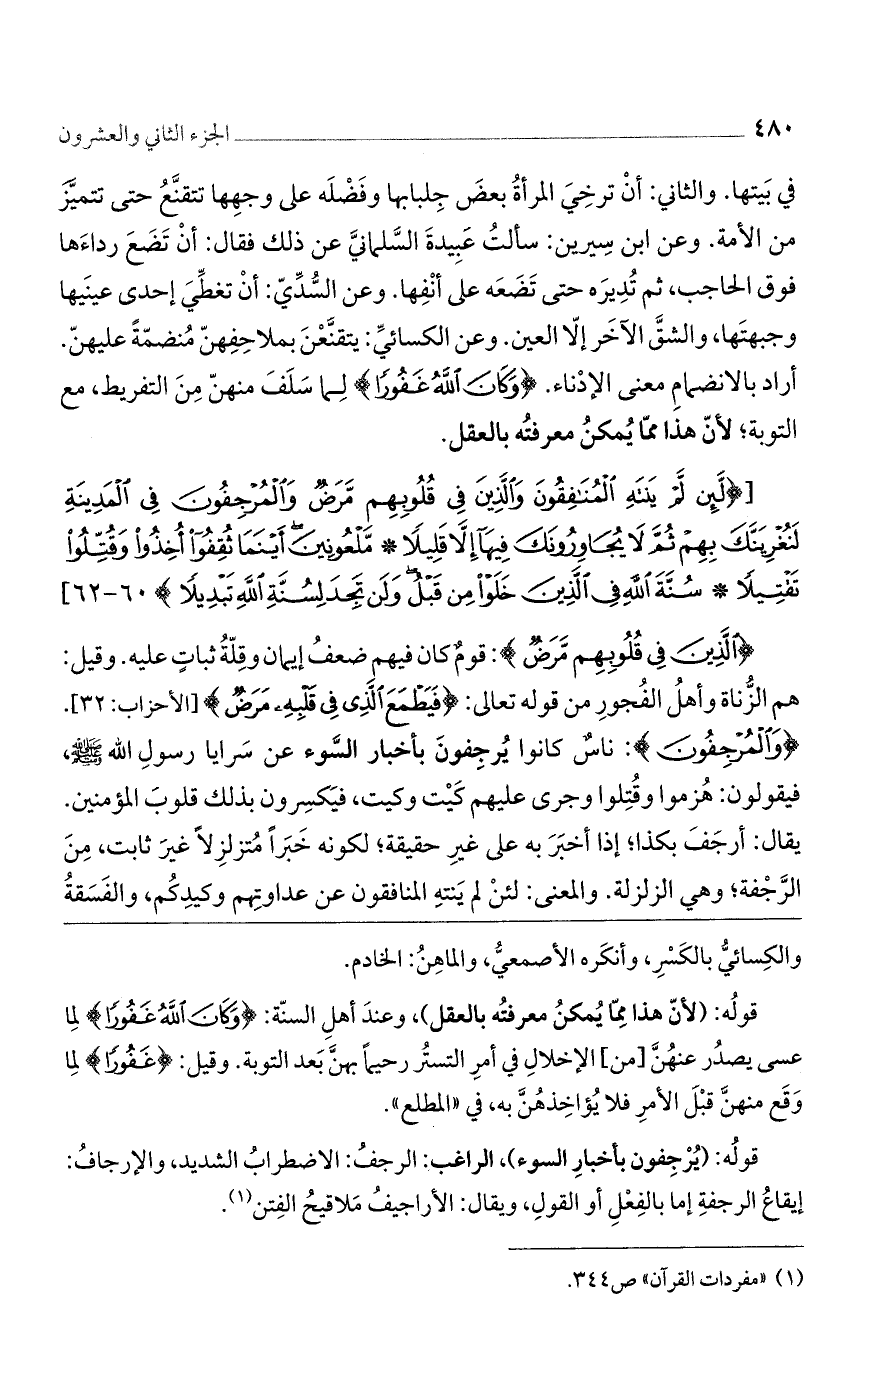 ٤٨٠ ــــــــــــــــــــــــــــــــــــــــ الجزء الثاني والعشرون
في بَيتها. والثاني: أنْ ترخِيَ المرأةُ بعضَ جِلبابها وفَضْلَه على وجهِها تتقنَّعُ حتى تتميَّز
من الأمة. وعن ابن سِيرين: سألتُ عَبِيدةَ السَّلمانيَّ عن ذلك فقال: أنْ تَضَعَ رداءَها
فوق الحاجب، ثم تُدِيرَه حتى تَضَعَه على أنْفِها. وعن السُّدِّيّ: أنْ تغطِّيَ إحدى عينَيها
وجبهتَها، والشقَّ الآخَر إلّا العين. وعن الكسائيِّ: يتقنَّعْنَ بملاحِفِهنّ مُنضمّةً عليهنّ.
أراد بالانضمامِ معنى الإدْناء. ﴿وَكَانَ ٱللَّهُ غَفُورًا﴾ لِما سَلَفَ منهنّ مِنَ التفريط، مع
التوبة؛ لأنّ هذا ممّا يُمكنُ معرفتُه بالعقل.
[﴿لَّئِن لَّمْ يَنتَهِ ٱلْمُنَـٰفِقُونَ وَٱلَّذِينَ فِى قُلُوبِهِم مَّرَضٌ وَٱلْمُرْجِفُونَ فِى ٱلْمَدِينَةِ
لَنُغْرِيَنَّكَ بِهِمْ ثُمَّ لَا يُجَاوِرُونَكَ فِيهَآ إِلَّا قَلِيلًا * مَّلْعُونِينَ ۖ أَيْنَمَا ثُقِفُوٓا۟ أُخِذُوا۟ وَقُتِّلُوا۟
تَقْتِيلًا * سُنَّةَ ٱللَّهِ فِى ٱلَّذِينَ خَلَوْا۟ مِن قَبْلُ ۖ وَلَن تَجِدَ لِسُنَّةِ ٱللَّهِ تَبْدِيلًا﴾ ٦٠-٦٢]
﴿ٱلَّذِينَ فِى قُلُوبِهِم مَّرَضٌ﴾: قومٌ كان فيهم ضعفُ إيمان وقِلّةُ ثباتٍ عليه. وقيل:
هم الزُّناة وأهلُ الفُجورِ من قوله تعالى: ﴿فَيَطْمَعَ ٱلَّذِى فِى قَلْبِهِۦ مَرَضٌ﴾ [الأحزاب: ٣٢].
﴿وَٱلْمُرْجِفُونَ﴾: ناسٌ كانوا يُرجِفونَ بأخبار السَّوء عن سَرايا رسولِ الله ﷺ،
فيقولون: هُزموا وقُتِلوا وجرى عليهم كَيْت وكيت، فيَكسِرون بذلك قلوبَ المؤمنين.
يقال: أرجَفَ بكذا؛ إذا أخبَرَ به على غيرِ حقيقة؛ لكونه خَبَراً مُتزلزِلاً غيرَ ثابت، مِنَ
الرَّجْفة؛ وهي الزلزلة. والمعنى: لئنْ لم يَنتهِ المنافقون عن عداوتِهم وكيدِكُم، والفَسَقةُ
والكِسائيُّ بالكَسْرِ، وأنكَره الأصمعيُّ، والماهِنُ: الخادم.
قولُه: (لأنّ هذا مِمّا يُمكنُ معرفتُه بالعقل)، وعندَ أهلِ السنّة: ﴿وَكَانَ ٱللَّهُ غَفُورًا﴾ لِما
عسى يصدُر عنهُنَّ [من] الإخلالِ في أمرِ التستُّرِ رحيماً بهنَّ بَعد التوبة. وقيل: ﴿غَفُورًا﴾ لِما
وَقَع منهنَّ قبْلَ الأمرِ فلا يُؤاخِذهُنَّ به، في «المطلع».
قولُه: (يُرْجِفون بأخبارِ السوء)، الراغب: الرجفُ: الاضطرابُ الشديد، والإرجافُ:
إيقاعُ الرجفةِ إما بالفِعْلِ أو القولِ، ويقال: الأراجيفُ مَلاقيحُ الفِتن(١).
(١) «مفردات القرآن» ص٣٤٤.